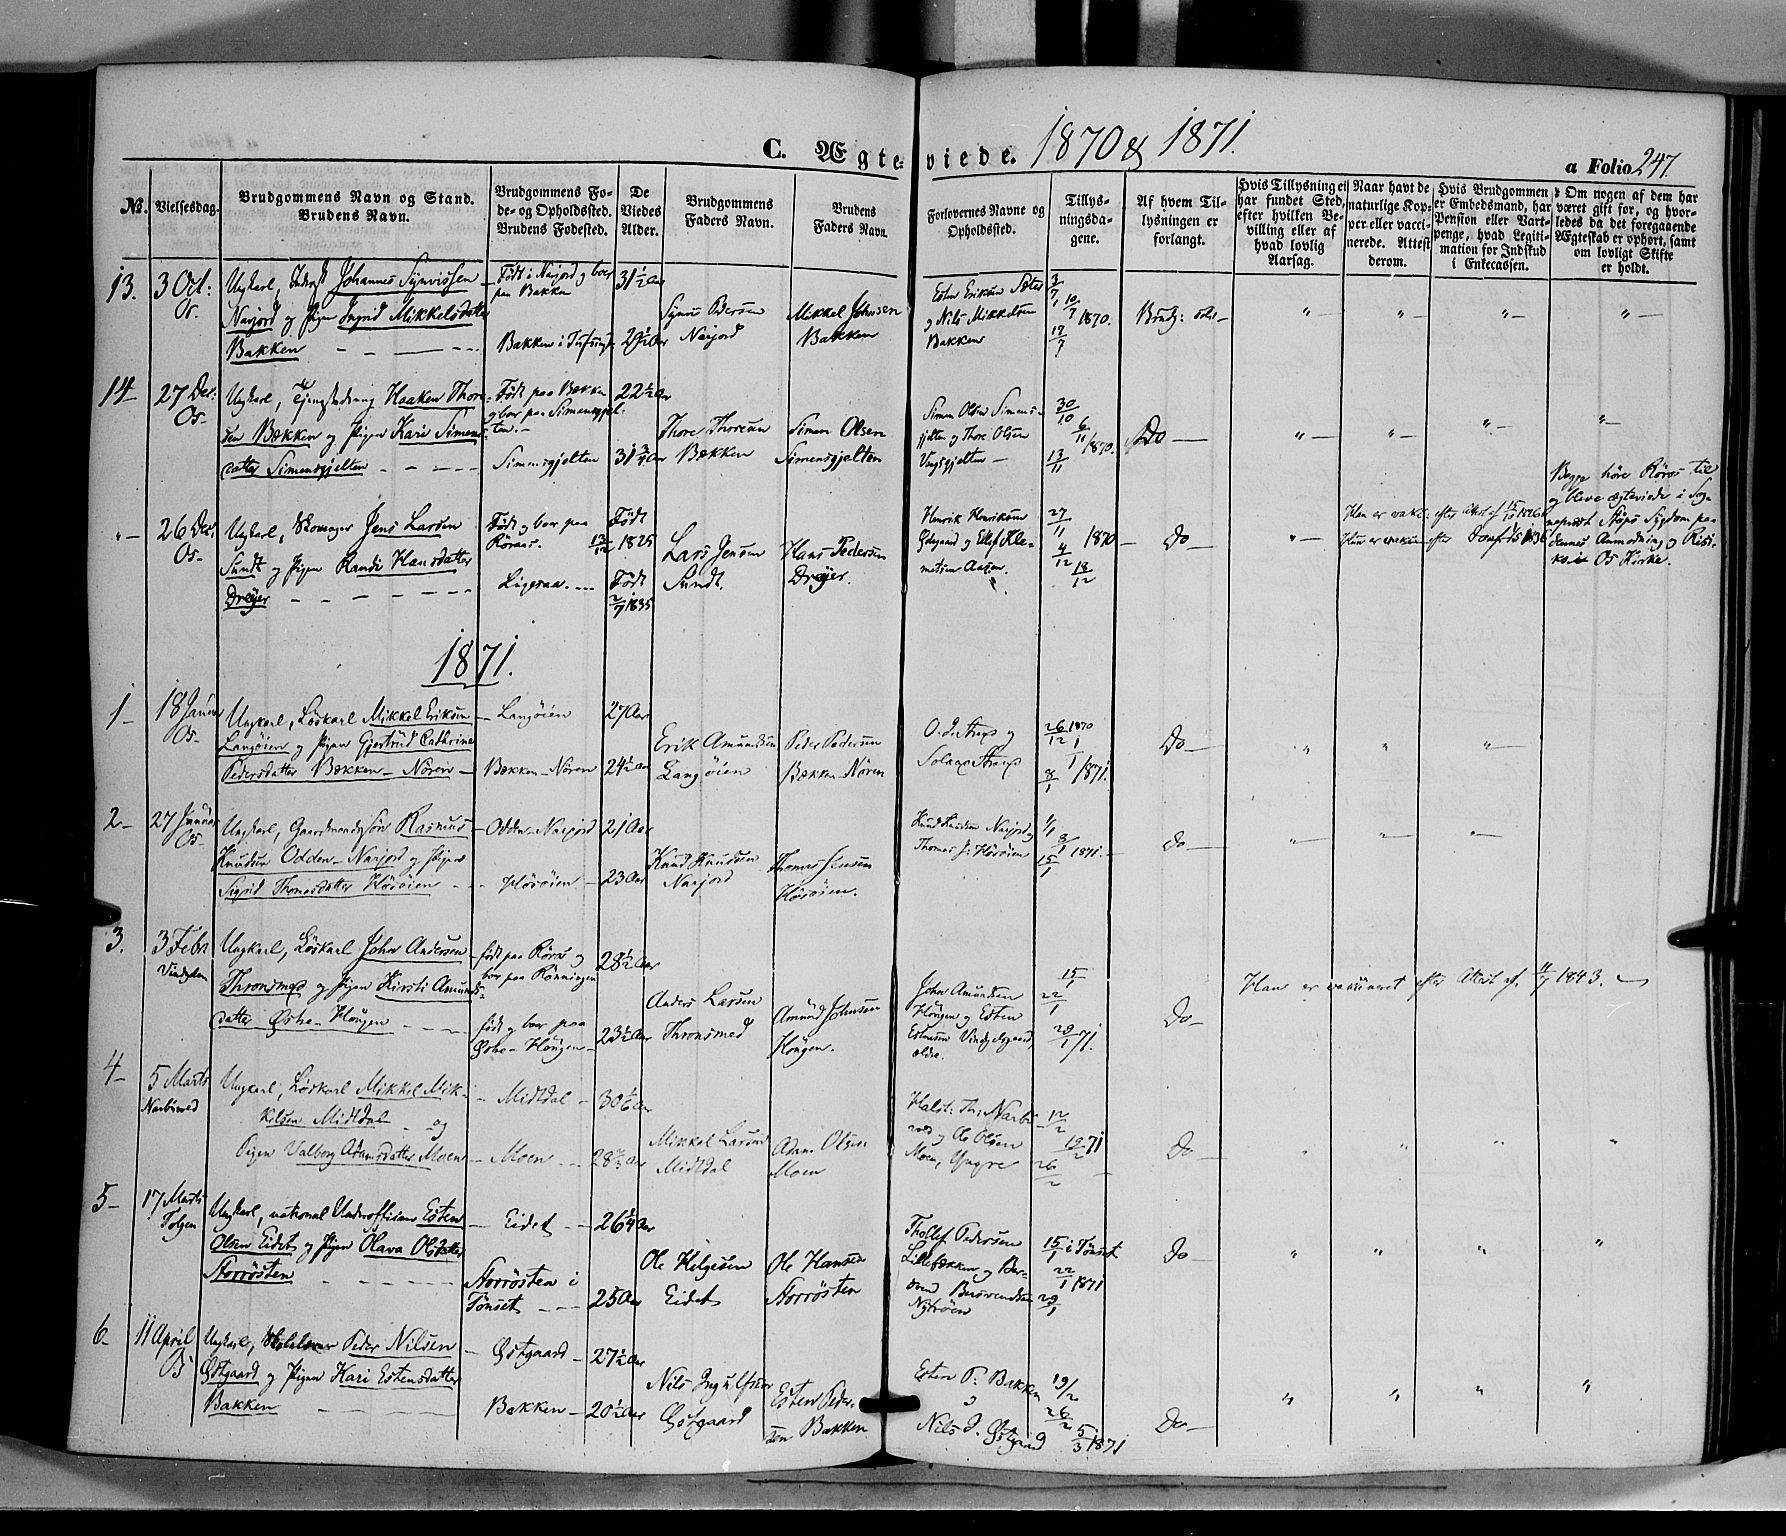 C. Ægteviede. 1870 & 1871.
a Folio 247.
No.
Vielsesdag.
Brudgommens Navn og Stand.
Brudens Navn.
Brudgommens Fo-
de- og Opholdssted.
Brudens Fødested.
De
Viedes
Alder.
Brudgommens
Faders Navn.
Brudens
Faders Navn.
Forlovernes Navne og
Opholdssted.
Tillys-
ningsda-
gene.
Af hvem Til-
lysningen er
forlangt.
Hvis Tillysning ei
har fundet Sted,
efter hvilken Be-
villing eller af
hvad lovlig
Aarsag.
Naar havt de
naturlige Kop-
per eller vacci-
nerede. Attest
derom.
Hvis Brudgommen
er Embedsmand, har
Pension eller Vart-
penge, hvad Legiti-
mation for Indskud
i Enkecassen.
Om nogen af dem har
været gift før, og hvor-
ledes da det foregaaende
Ægteskab er ophørt, samt
om lovligt Skifte
er holdt.
13. 3 Oct:
Os.
Ungkarl, Johannes Synvissen
Narjord og Pigen Ingrid Mikkelsdatter
Bakken
Født i Narjord og boer
paa Bakken
Bakken i
31½ Aar
Pedersen
Narjord
Mikkel Johnsen
Bakken
Esten Eriksen
og Nils Mikkelsen
Bakken
3/7 10/7 1870.
17/7
Brudg:
14 27 Dec:
Os
Ungkarl, Haaken Thore-
sen Bækken og Pigen Kari Simens-
datter Simensgjelten
Født paa Bækken
og bor paa Simensgjel-
ten.
Simensgjelten
22½ Aar
31¾ Aar
Thore Thoresen
Bækken
Simen Olsen
Simensgjelten
Simen Olsen Simens-
gjelten og Thore Olsen
30/10
6/11 1870.
13/11
Do
" 26 Dec.
Os
Ungkarl, Jens Larsen
Sundt og Pigen Randi Hansdatter
Dreyer
Født og bor paa
Røraas.
Ligesaa.
Født
13/12 1825
Født
2/7 1835
Lars Jensen
Sundt.
Hans Pedersen
Dreyer.
Henrik Henriksen
og Ellef Kle-
metsen Aasen.
27/11 1870
4/12
18/12
Do
Begge høre Røros til
og blive ægteviede i
paa
dennes Anmodning og
Os Kirke.
1871.
1 18 Januar
Os
Ungkarl, Løskarl Mikkel Eriksen
Langøien og Pigen Gjertrud Cathrine
Pedersdatter Bækken-Nören
Langøien
Bækken-Nören
27 Aar
24½ Aar
Erik Amundsen
Langøien
Peder Pedersen
Bækken-Nören
26/12 1870
1/1
8/1 1871.
Do
2 27 Januar
Os
Ungkarl, Gaardmandssøn Rasmus
Knudsen Odden-Narjord og Pigen
Sigrid Thomasdatter Hörøien
Odden-Narjord
Hörøien
21 Aar
23 Aar
Knud Knudsen
Narjord
Thomas Jensen
Hörøien.
Knud Knudsen Narjord og
Thomas J: Hörøien
1/1
8/1 1871.
15/1
Do
3. 3 Febr
Ungkarl, Løskarl John Andersen
Thronsmed og Pigen Kirsti Amunds-
datter Østre-Hougen
født paa Röros og
bor paa Rönningen
født og bor paa
Østre-Hougen
28½ Aar
23½ Aar
Anders Larsen
Thronsmed
Amund Johnsen
Hougen.
John Amundsen
Hougen og Esten
Estensen
ældre.
15/1
22/1
29/1 71.
Do
Han er vaccineret efter Attest af 11/7 1843.
4 5 Marts
Narbuvoed
Ungkarl, Løskarl Mikkel Mik-
kelsen Midtdal og
Pigen Valborg Adamsdatter Moen
Midtdal
Moen
30 1/6 Aar
28 2/3 Aar
Mikkel Larsen
Midtdal
Adam Olsen
Moen
og Ole Olsen
Moen, Yngre
12/2
19/2 71
26/2
Do
5 17 Marts
Tolgen
Ungkarl, national Underofficier Esten
Olsen Eidet og Pigen Olava Olsdatter
Storrösten
Eidet
Storrösten i
Tönset
26¼ Aar
25 Aar
Ole Helgesen
Eidet
Ole Hansen
Storrösten
Thollef Pedersen
Lillebækken og
Nytröen
15/1 i Tönset
22/1 1871
29/1
Do
6 11 April
Os
Ungkarl, Peder Nilsen
Østgaard og Pigen Kari Estensdatter
Bakken
Østgaard
Bakken
27½ Aar
20½ Aar
Nils Ingulfsen
Østgaard
Esten Peder-
sen Bakken
Esten P: Bakken
Nils J. Østgaard
19/2
26/2
5/3 1871
Do